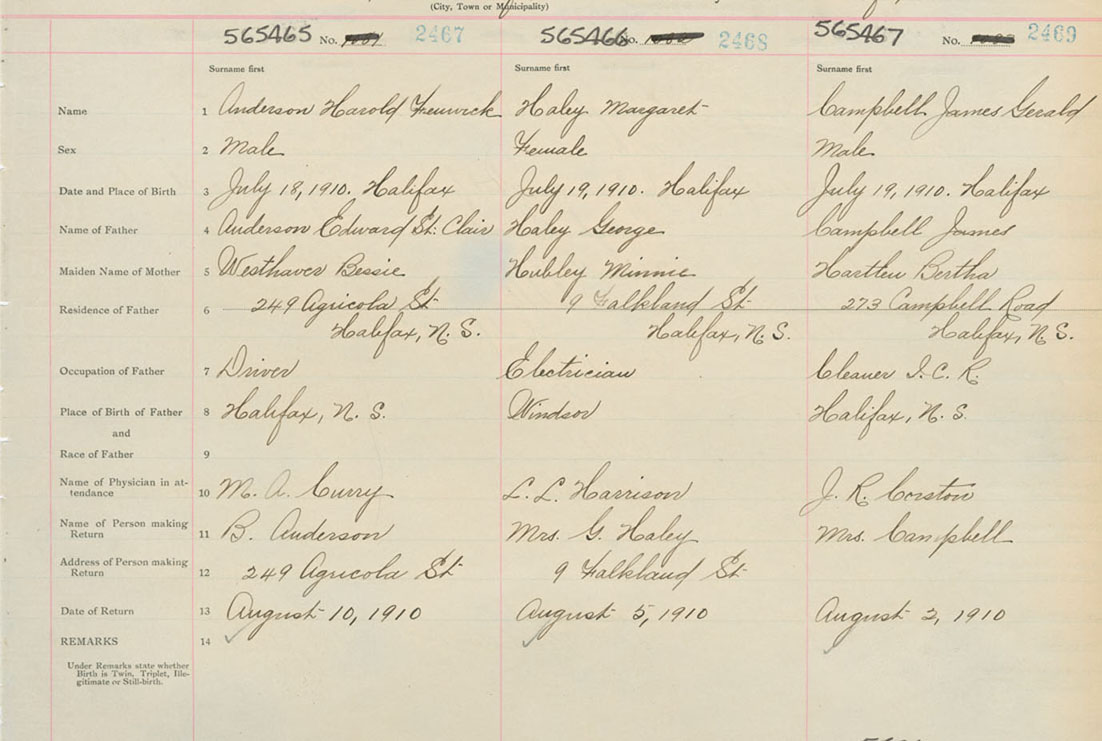 (City, Town or Municipality)
565465 No. 2467 565466 No. 2468 565467 No. 2469
Surname first Surname first Surname first
Name 1 Anderson Harold Fenwick Haley Margaret Campbell James Gerald
Sex 2 Male Female Male
Date and Place of Birth 3 July 18, 1910. Halifax July 19, 1910. Halifax July 19, 1910. Halifax
Name of Father 4 Anderson Edward St. Clair Haley George Campbell James
Maiden Name of Mother 5 Westhaver Bessie Hubley Minnie Hartlen Bertha
Residence of Father 6 249 Agricola St 9 Falkland St 273 Campbell Road
Halifax, N. S. Halifax, N. S. Halifax, N. S.
Occupation of Father 7 Driver Electrician Cleaner I. C. R.
Place of Birth of Father 8 Halifax, N. S. Windsor Halifax, N. S.
and
Race of Father 9
Name of Physician in at-
tendance 10 M. A. Curry L. L. Harrison J. R. Corston
Name of Person making
Return 11 B. Anderson Mrs. G. Haley Mrs. Campbell
Address of Person making
Return 12 249 Agricola St 9 Falkland St
Date of Return 13 August 10, 1910 August 5, 1910 August 2, 1910
REMARKS 14
Under Remarks state whether
Birth is Twin, Triplet, Ille-
gitimate or Still-birth.